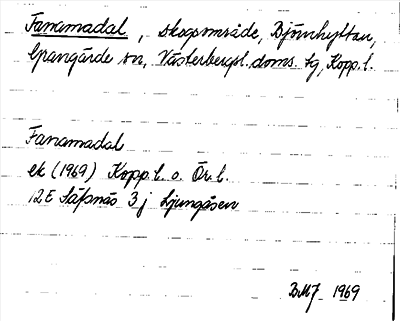 Fanamadal, skogsområde, Björnhyttan,
Grangärde sn, Västerbergsl. doms. tg, Kopp. l.
Fanamadal
ek (1969) Kopp. l. o. Ör. l.
12E Säfsnäs 3 j Ljungåsen
BMJ 1969